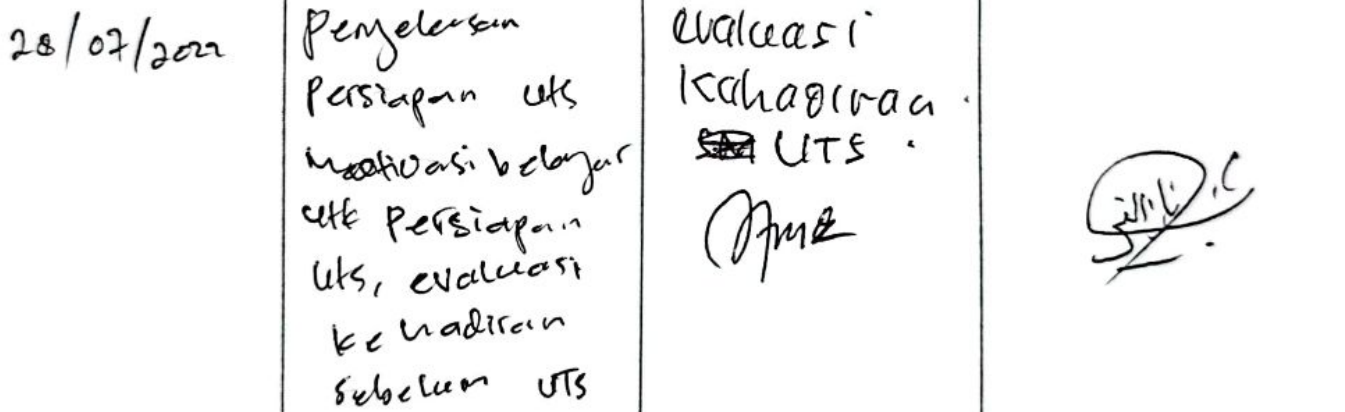 28/07/2022
Penjelasan
Persiapan uts
motivasi belajar
utk Persiapan
Uts, evaluasi
kehadiran
sebelum UTS
evaluasi
Kahadiraan.
UTS.